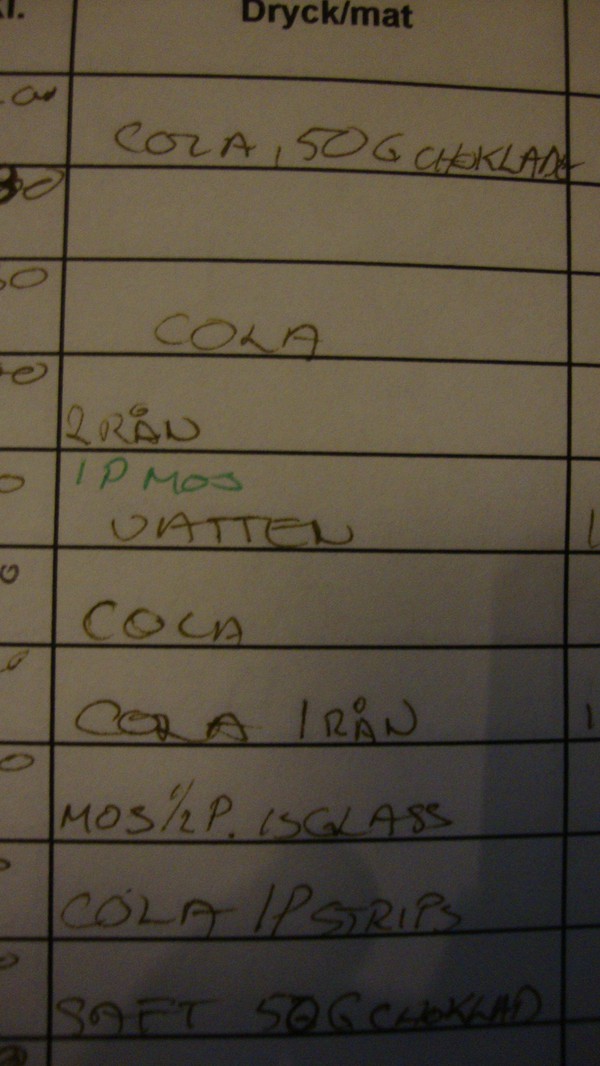 Dryck/mat
COLA, 50G CHOKLAD
COLA
2 RÅN
1 P MOS
VATTEN
COLA
COLA 1 RÅN
MOS 1/2 P. ISGLASS
COLA 1P STRIPS
SAFT 50G CHOKLAD